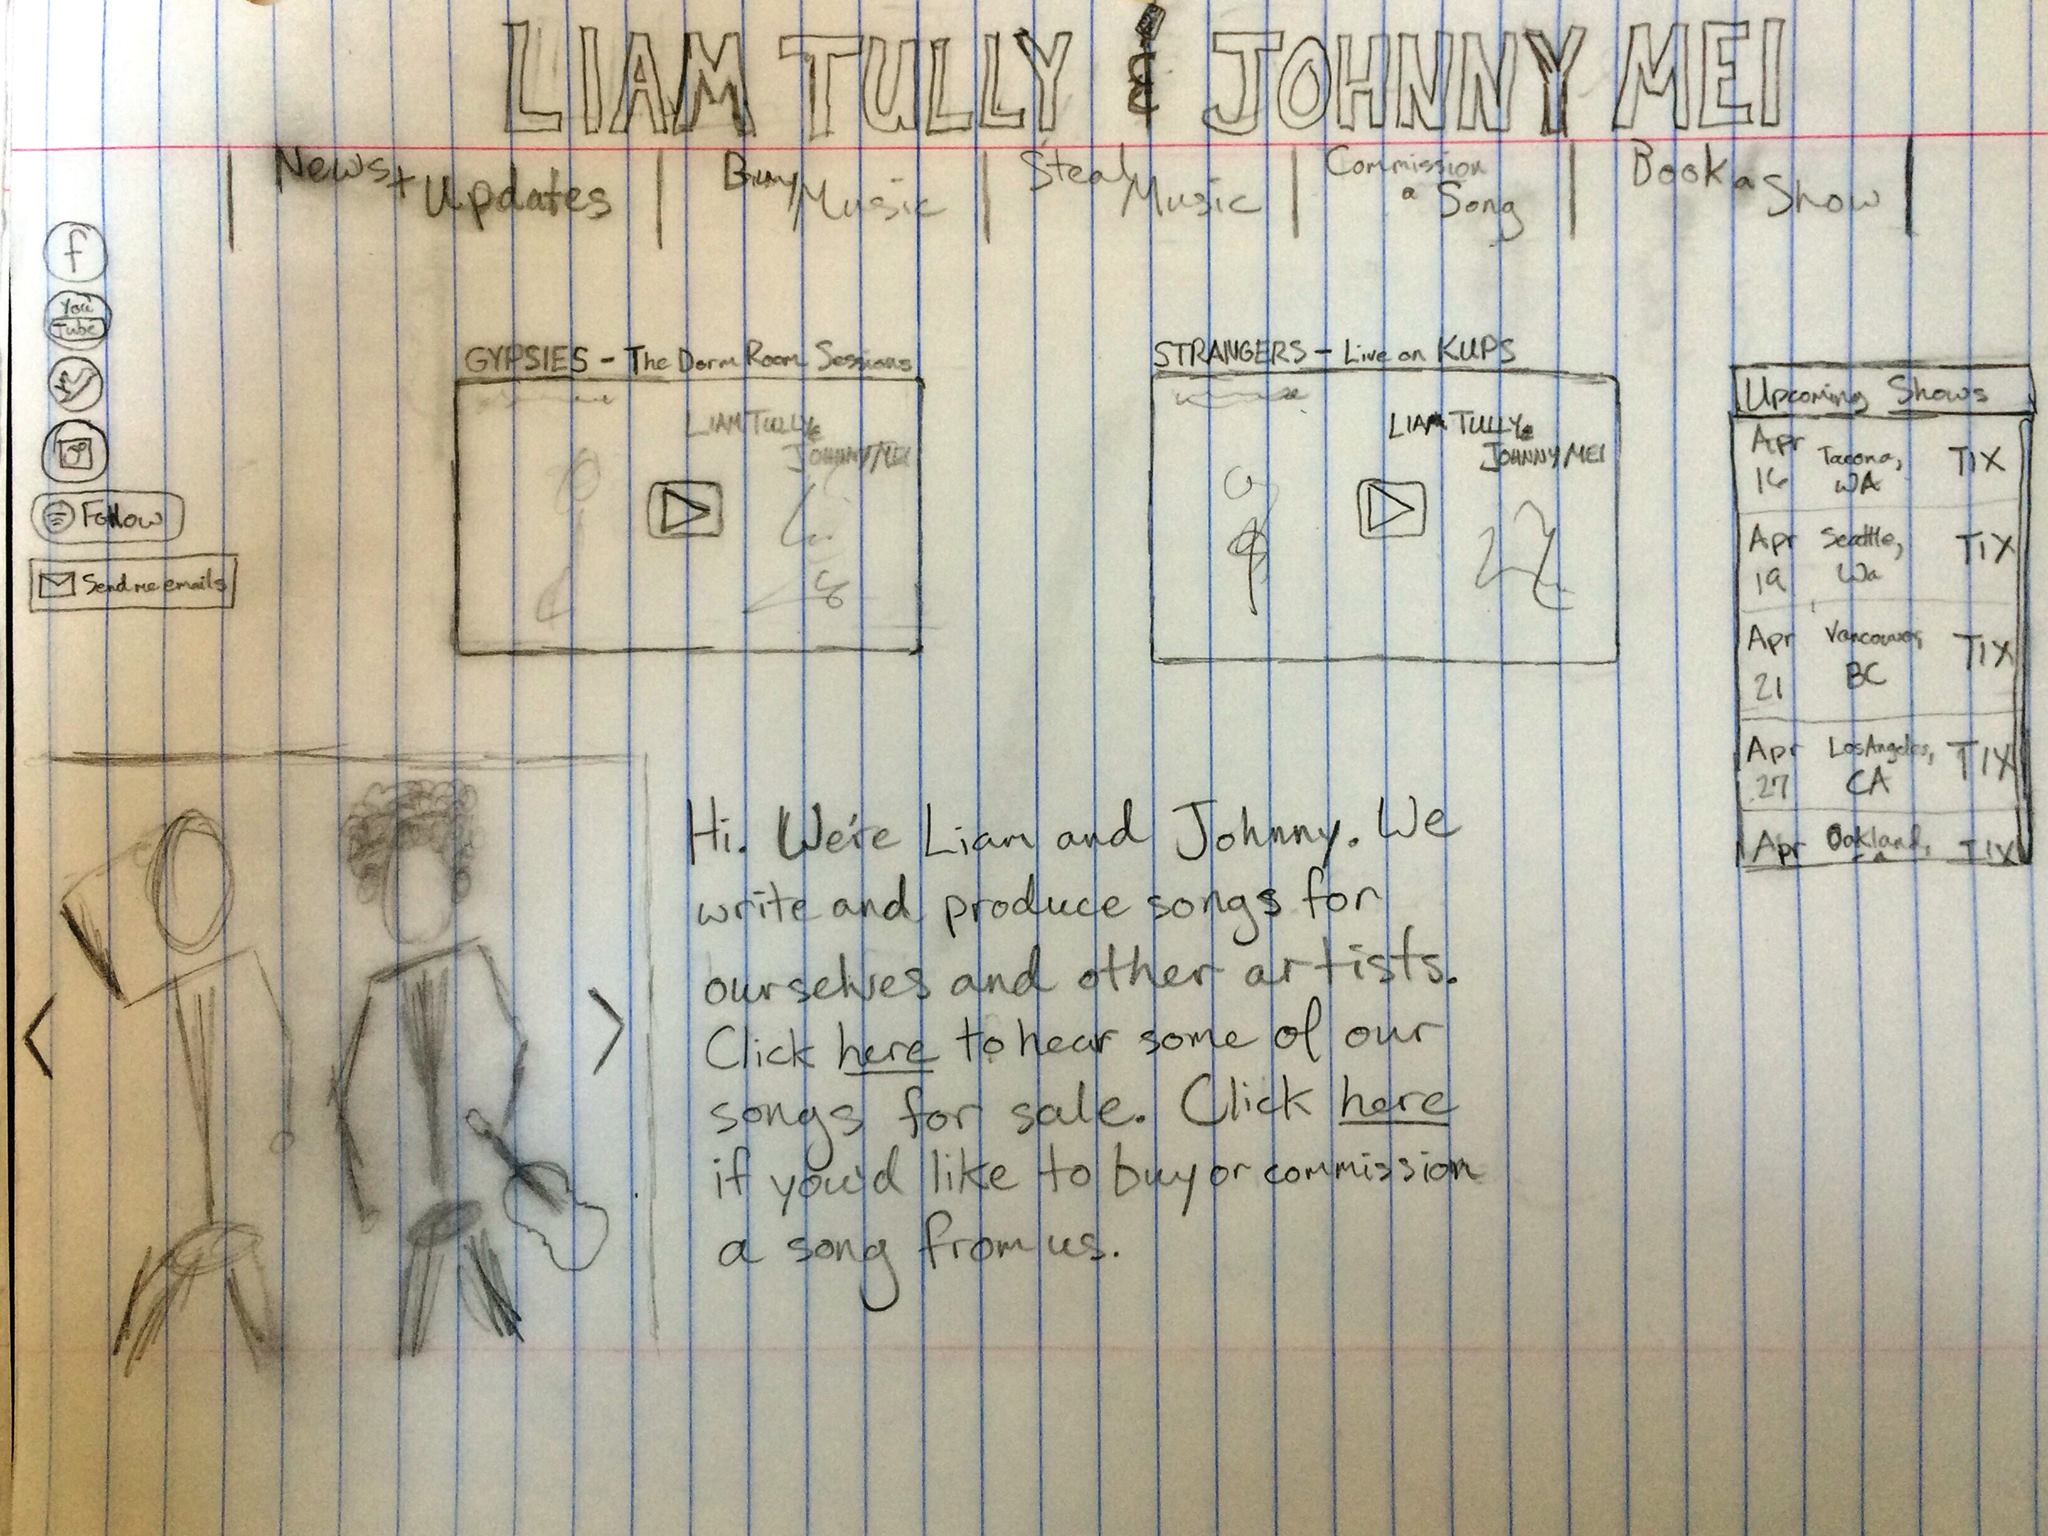 LIAM TULLY & JOHNNY MEI
News + Updates
Buy Music
Steal Music
Commission a Song
Book a Show
f
You
Tube
Follow
Send me emails
GYPSIES - The Dorm Room Sessions
LIAM TULLY &
JOHNNY MEI
STRANGERS - Live on KUPS
LIAM TULLY &
JOHNNY MEI
Upcoming Shows
Apr 16 Tacoma, WA TIX
Apr 19 Seattle, Wa TIX
Apr 21 Vancouver, BC TIX
Apr 27 Los Angeles, CA TIX
Apr Oakland, TIX
Hi. We're Liam and Johnny. We
write and produce songs for
ourselves and other artists.
Click here to hear some of our
songs for sale. Click here
if you'd like to buy or commission
a song from us.